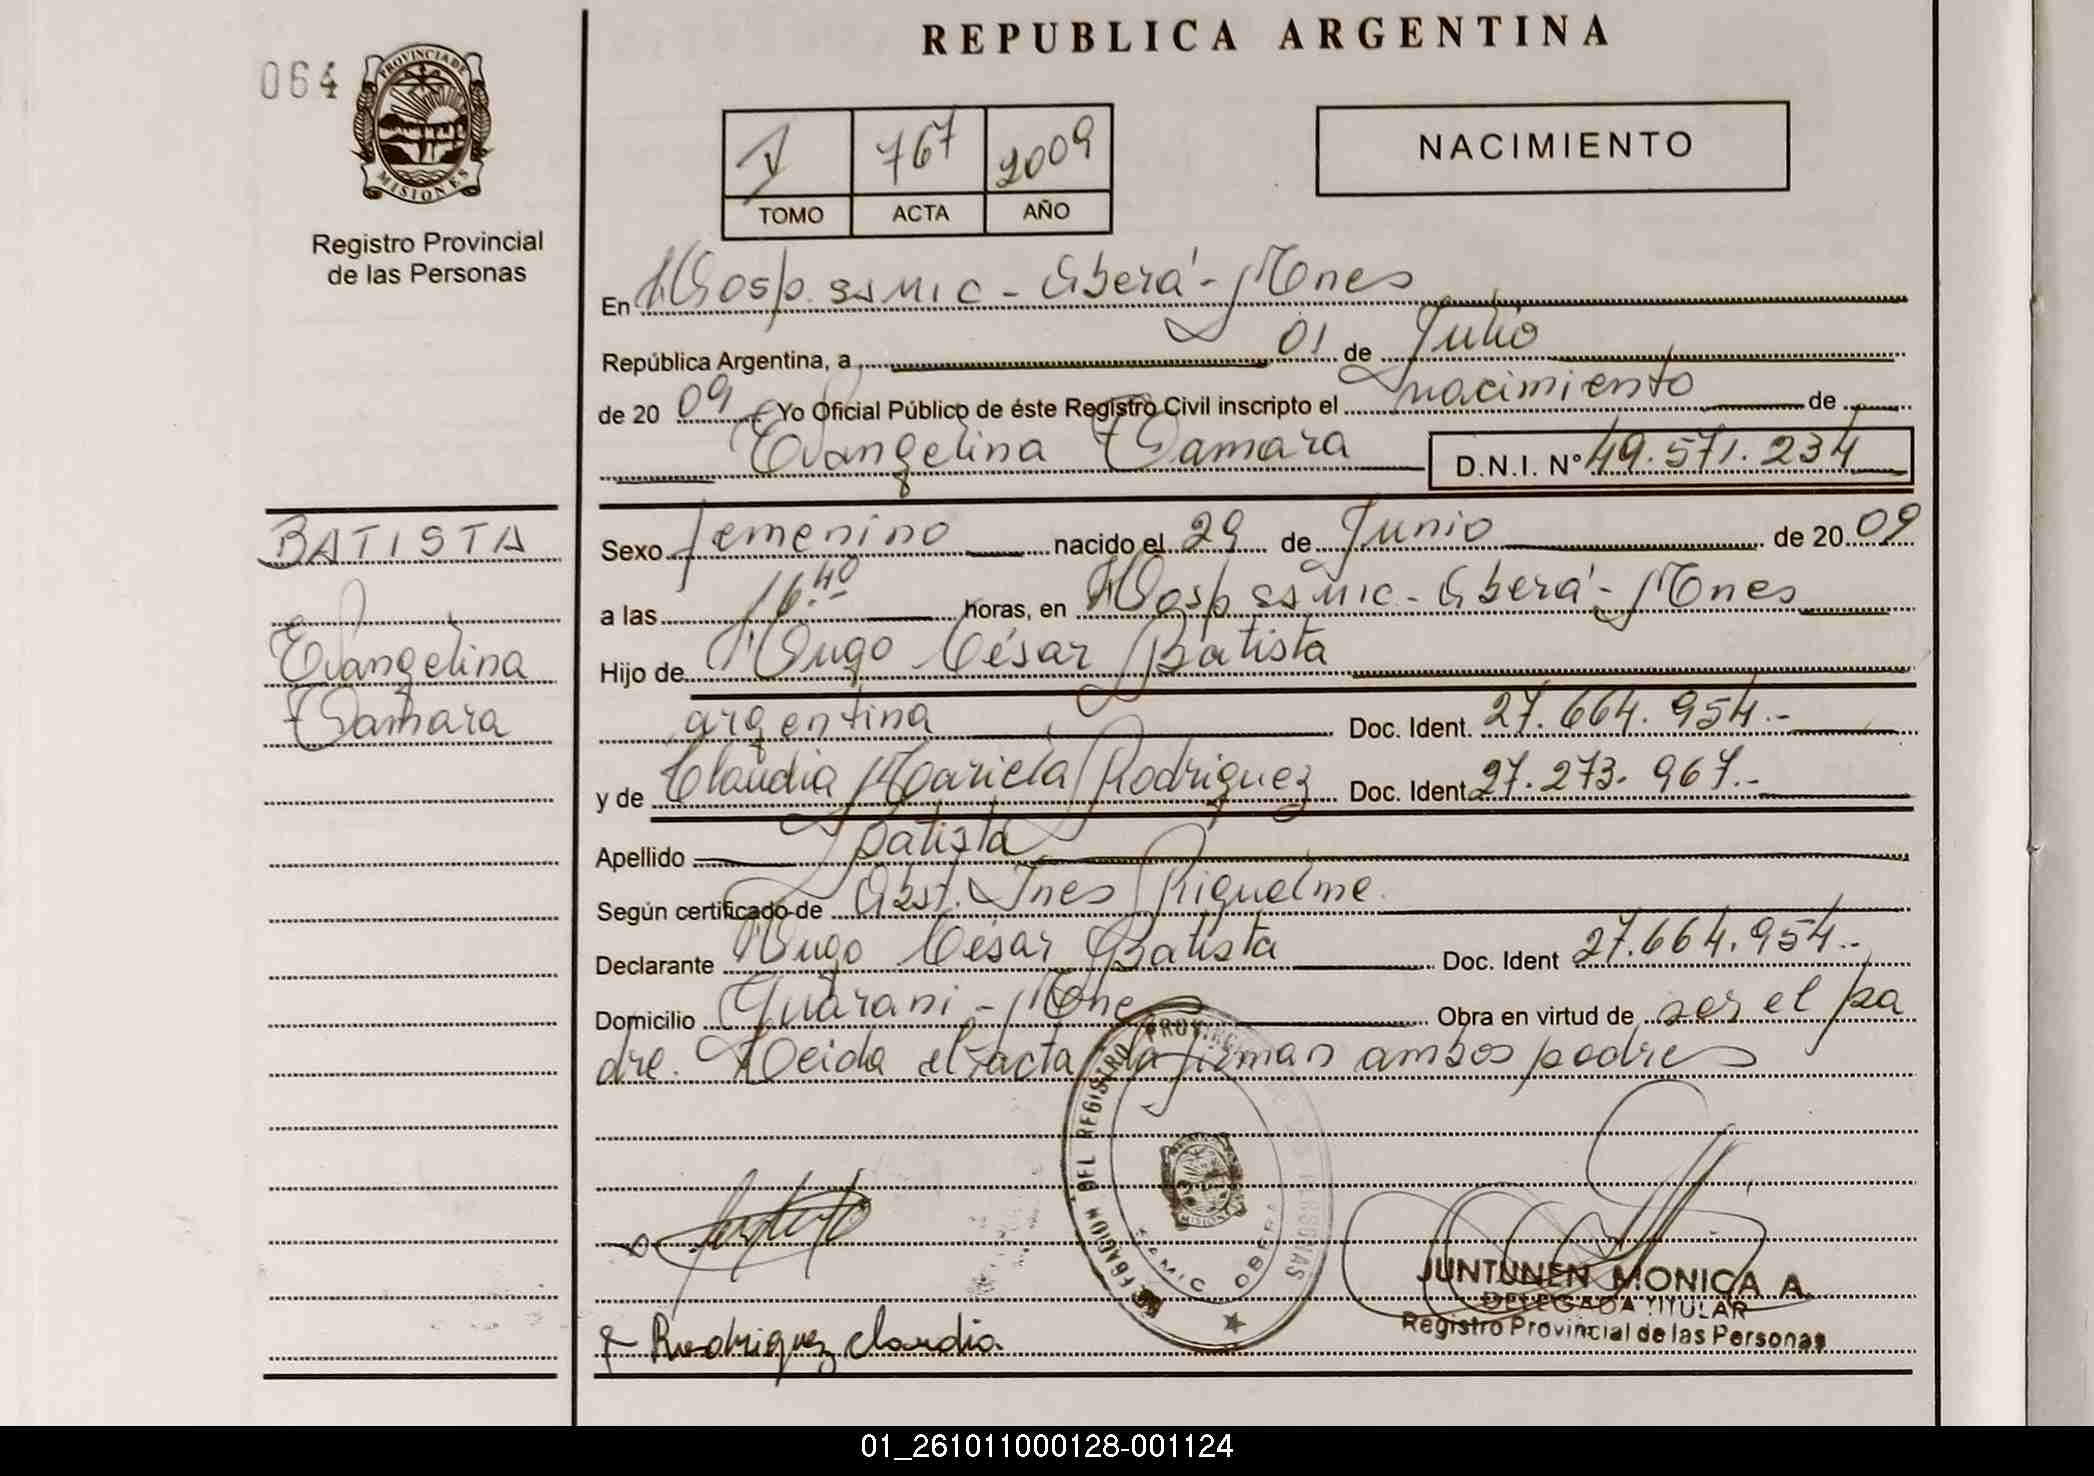 064
PROVINCIA DE
MISIONES
Registro Provincial
de las Personas
REPUBLICA ARGENTINA
767 2009
TOMO ACTA AÑO
NACIMIENTO
En Hosp. SSMIC - Oberá - Mones
República Argentina, a 01 de Julio
de 2009 Yo Oficial Público de éste Registro Civil inscripto el nacimiento de
Evangelina Tamara D.N.I. Nº 49.571.234
BATISTA
Evangelina
Tamara
Sexo femenino nacido el 29 de Junio de 2009
a las 16.40 horas, en Hosp SSMIC - Oberá - Mones
Hijo de Hugo César Batista
argentina Doc. Ident. 27.664.954.-
y de Claudia Mariela Rodriguez Doc. Ident. 27.273.967.-
Apellido Batista
Según certificado de Obst. Ines Riquelme.
Declarante Hugo César Batista Doc. Ident 27.664.954.-
Domicilio Guarani - Mones Obra en virtud de ser el pa
dre. Leida el acta la firman ambos padres
DELEGACION DEL REGISTRO PROVINCIAL DE LAS PERSONAS
SAMIC OBERA
MISIONES
JUNTUNEN MONICA A.
DELEGADA TITULAR
Registro Provincial de las Personas
Rodriguez Claudia
01_261011000128-001124